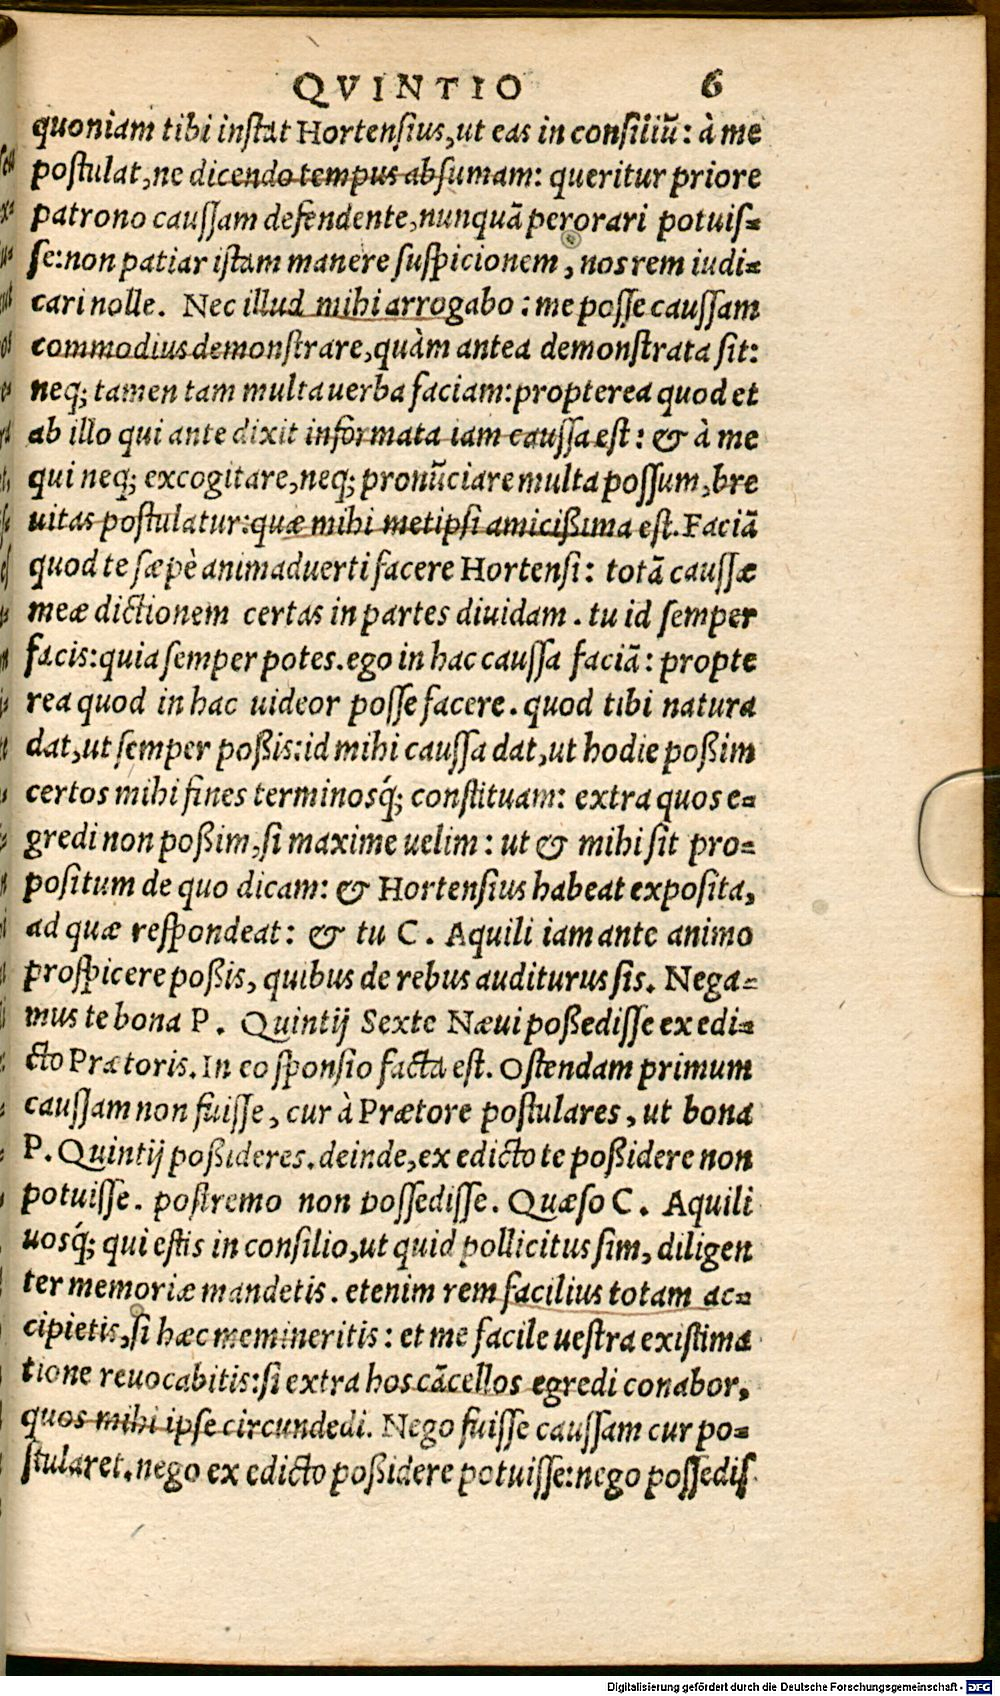 QVINTIO 6
quoniam tibi instat Hortensius, ut eas in consiliũ: à me
postulat, ne dicendo tempus absumam: queritur priore
patrono caussam defendente, nunquã perorari potuis=
se: non patiar istam manere suspicionem, nos rem iudi=
cari nolle. Nec illud mihi arrogabo: me posse caussam
commodius demonstrare, quàm antea demonstrata sit:
neq; tamen tam multa uerba faciam: propterea quod et
ab illo qui ante dixit informata iam caussa est: & à me
qui neq; excogitare, neq; pronũciare multa possum, bre
uitas postulatur: quæ mihi metipsi amicißima est. Faciã
quod te sæpè animaduerti facere Hortensi: totã caussæ
meæ dictionem certas in partes diuidam. tu id semper
facis: quia semper potes. ego in hac caussa faciã: propte
rea quod in hac uideor posse facere. quod tibi natura
dat, ut semper poßis: id mihi caussa dat, ut hodie poßim
certos mihi fines terminosq́; constituam: extra quos e=
gredi non poßim, si maxime uelim: ut & mihi sit pro=
positum de quo dicam: & Hortensius habeat exposita,
ad quæ respondeat: & tu C. Aquili iam ante animo
prospicere poßis, quibus de rebus auditurus sis. Nega=
mus te bona P. Quintij Sexte Næui poßedisse ex edi=
cto Prætoris. In eo sponsio facta est. Ostendam primum
caussam non fuisse, cur à Prætore postulares, ut bona
P. Quintij poßideres. deinde, ex edicto te poßidere non
potuisse. postremo non possedisse. Quæso C. Aquili
uosq́; qui estis in consilio, ut quid pollicitus sim, diligen
ter memoriæ mandetis. etenim rem facilius totam ac=
cipietis, si hæc memineritis: et me facile uestra existima
tione reuocabitis: si extra hos cãcellos egredi conabor,
quos mihi ipse circundedi. Nego fuisse caussam cur po=
stularet. nego ex edicto poßidere potuisse: nego possedis
Digitalisierung gefördert durch die Deutsche Forschungsgemeinschaft - DFG